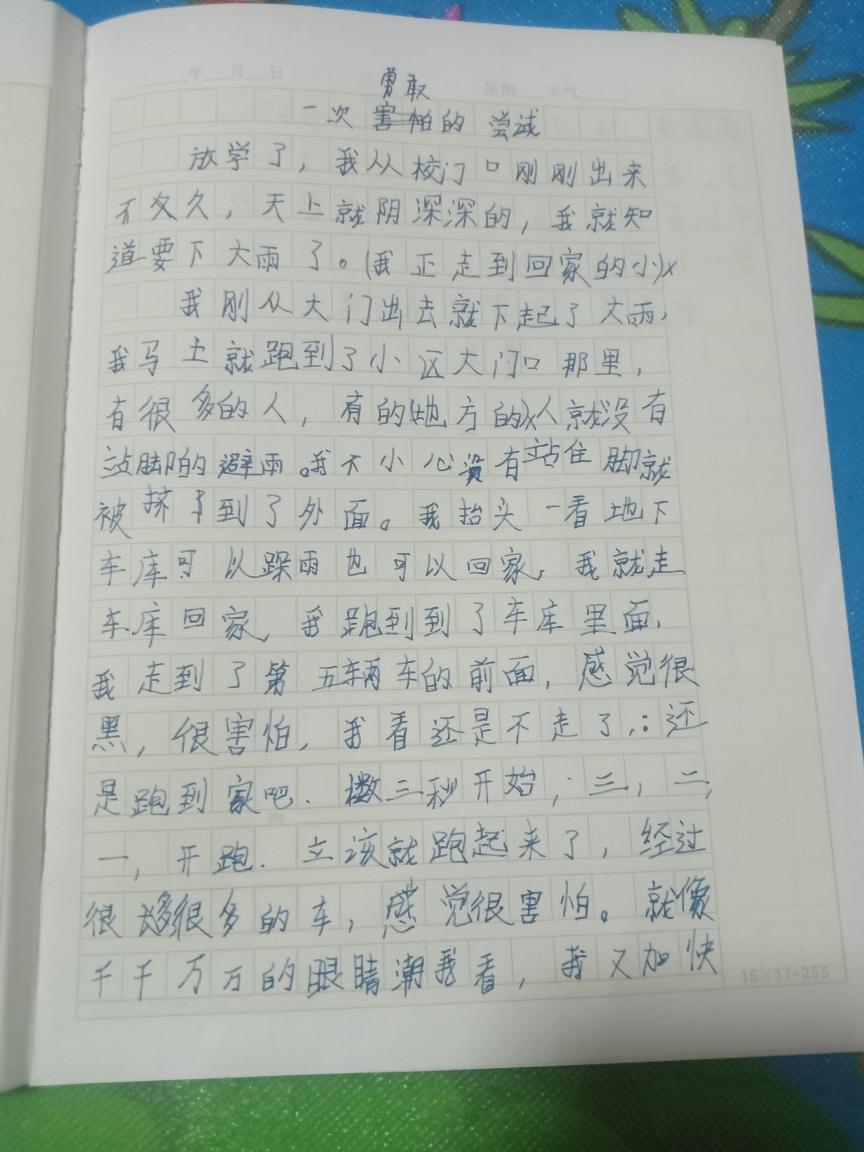 年 月 日 星期 天气
勇敢
一次害怕的 尝试
放学了，我从校门口刚刚出来
不久，天上就阴深深的，我就知
道要下大雨了。(我正走到回家的小)x
我刚从大门出去就下起了大雨，
我马上就跑到了小区大门口那里，
有很多的人，有的(地方的)x人就没有
站脚的避雨。我不小心没有站住脚就
被挤到了外面。我抬头一看地下
车库可以躲雨也可以回家，我就走
车库回家，我跑到到了车库里面，
我走到了第五辆车的前面，感觉很
黑，很害怕，我看还是不走了，还
是跑到家吧．数三秒开始，三，二，
一，开跑．立该就跑起来了，经过
很多很多的车，感觉很害怕。就像
千千万万的眼睛潮我看，我又加快
200
15×17=255